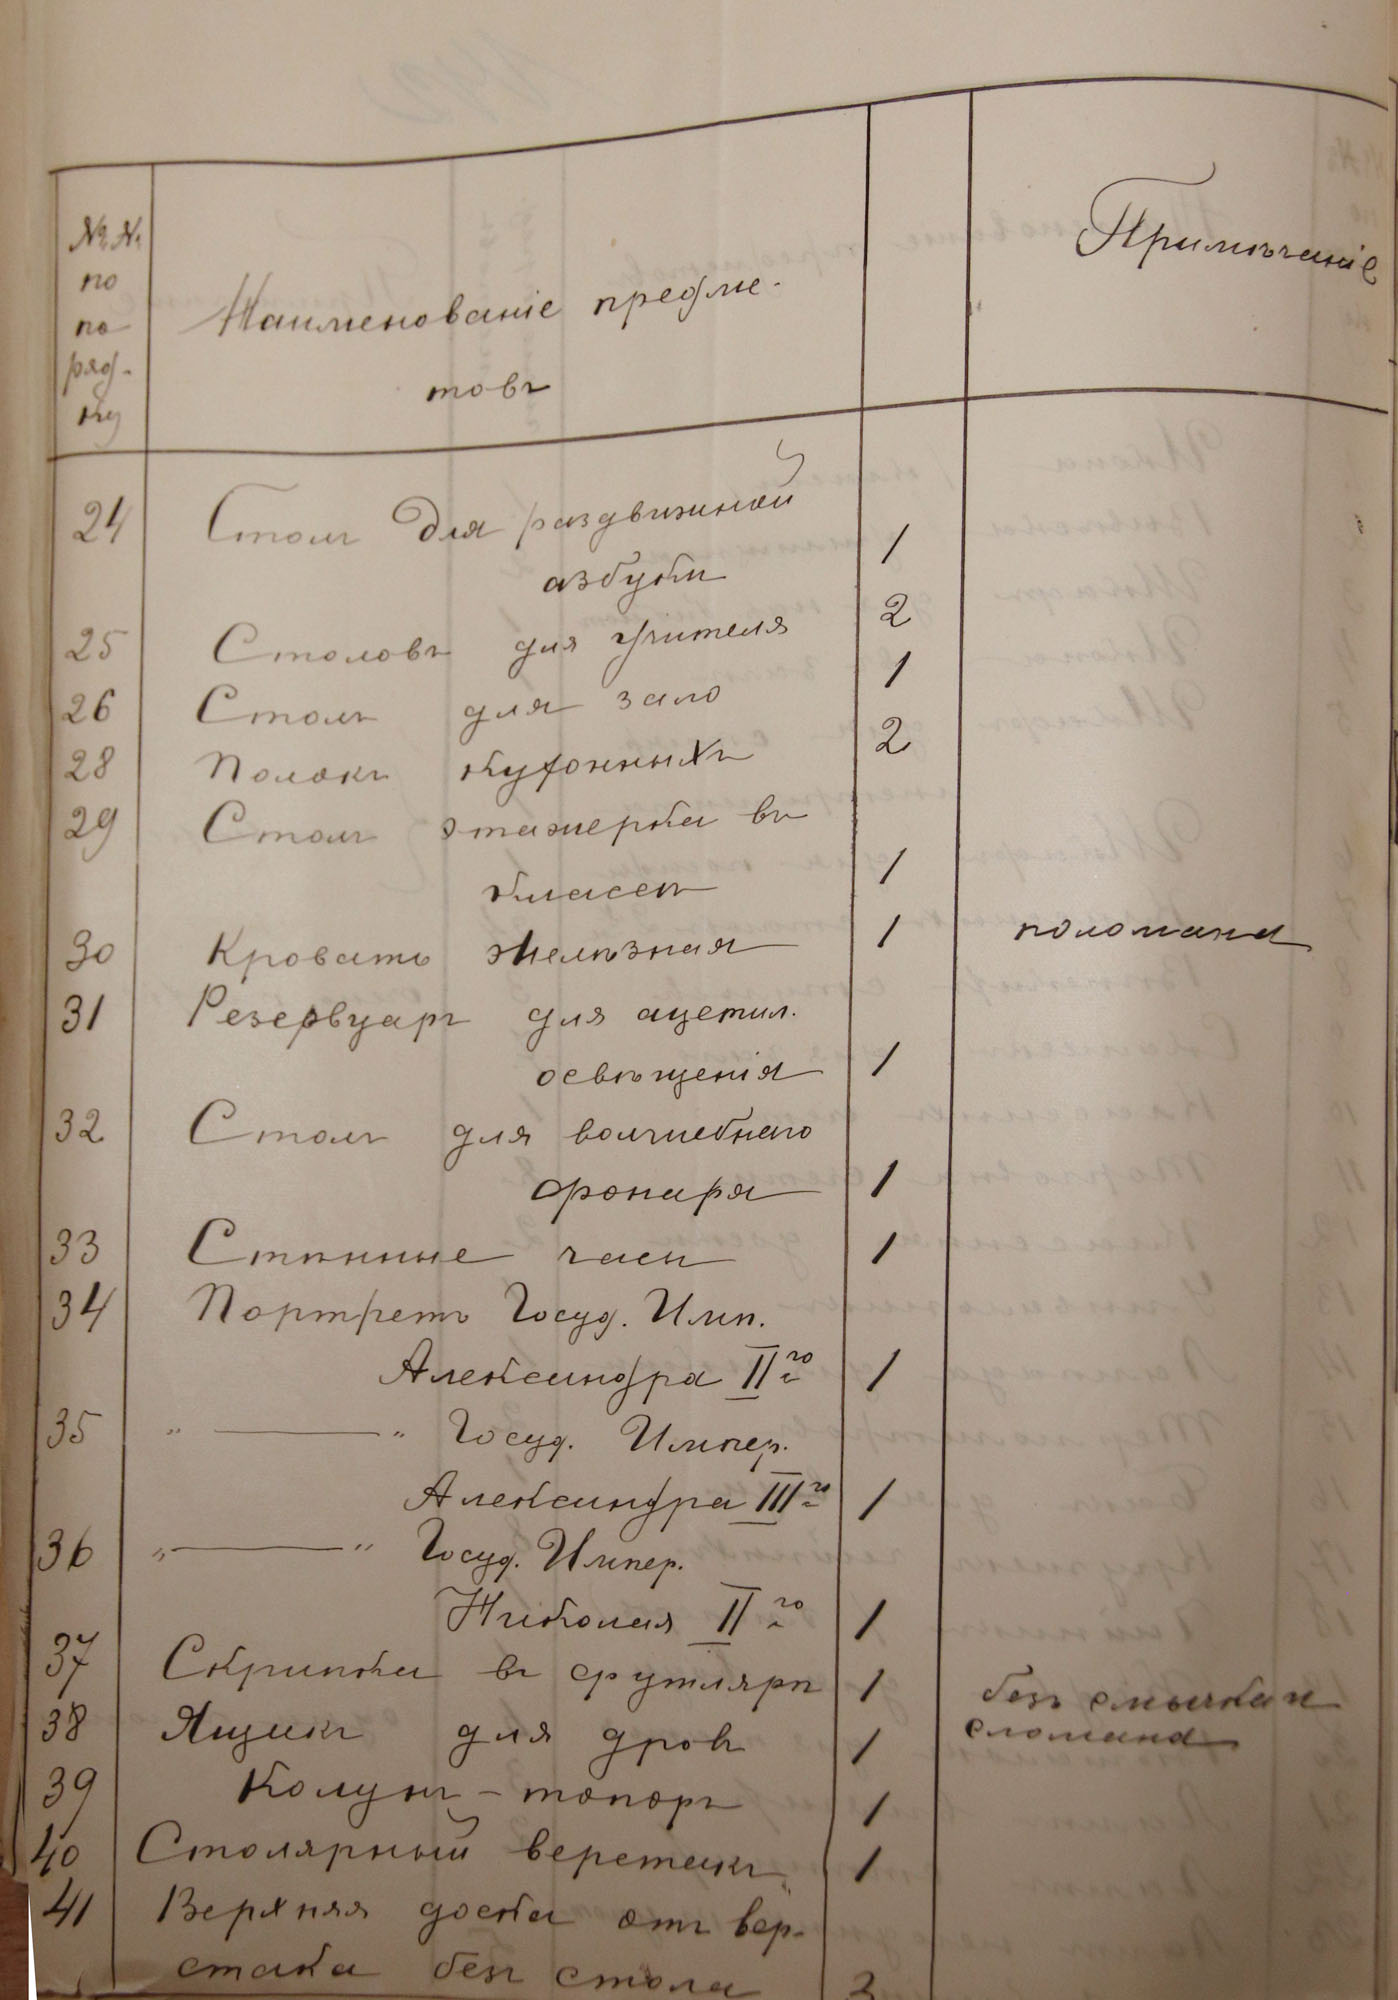 №№ по по ряд- ку
Наименованіе предме-
товъ
Примѣчаніе
24 Столъ для раздвижной
азбуки 1
25 Столовъ для учителя 2
26 Столъ для зало 1
28 Полокъ кухонныхъ 2
29 Столъ этажерка въ
классѣ 1
30 Кровать желѣзная 1 поломана
31 Резервуаръ для ацетил.
освѣщенія 1
32 Столъ для волшебнаго
фонаря 1
33 Стѣнные часы 1
34 Портретъ Госуд. Имп.
Александра II го 1
35 " — " Госуд. Импер.
Александра III го 1
36 " — " Госуд. Импер.
Николая II го 1
37 Скрипка въ футлярѣ 1 безъ смычка и
сломана
38 Ящикъ для дровъ 1
39 Колунъ - топоръ 1
40 Столярный верстакъ 1
41 Верхняя доска отъ вер-
стака безъ стола